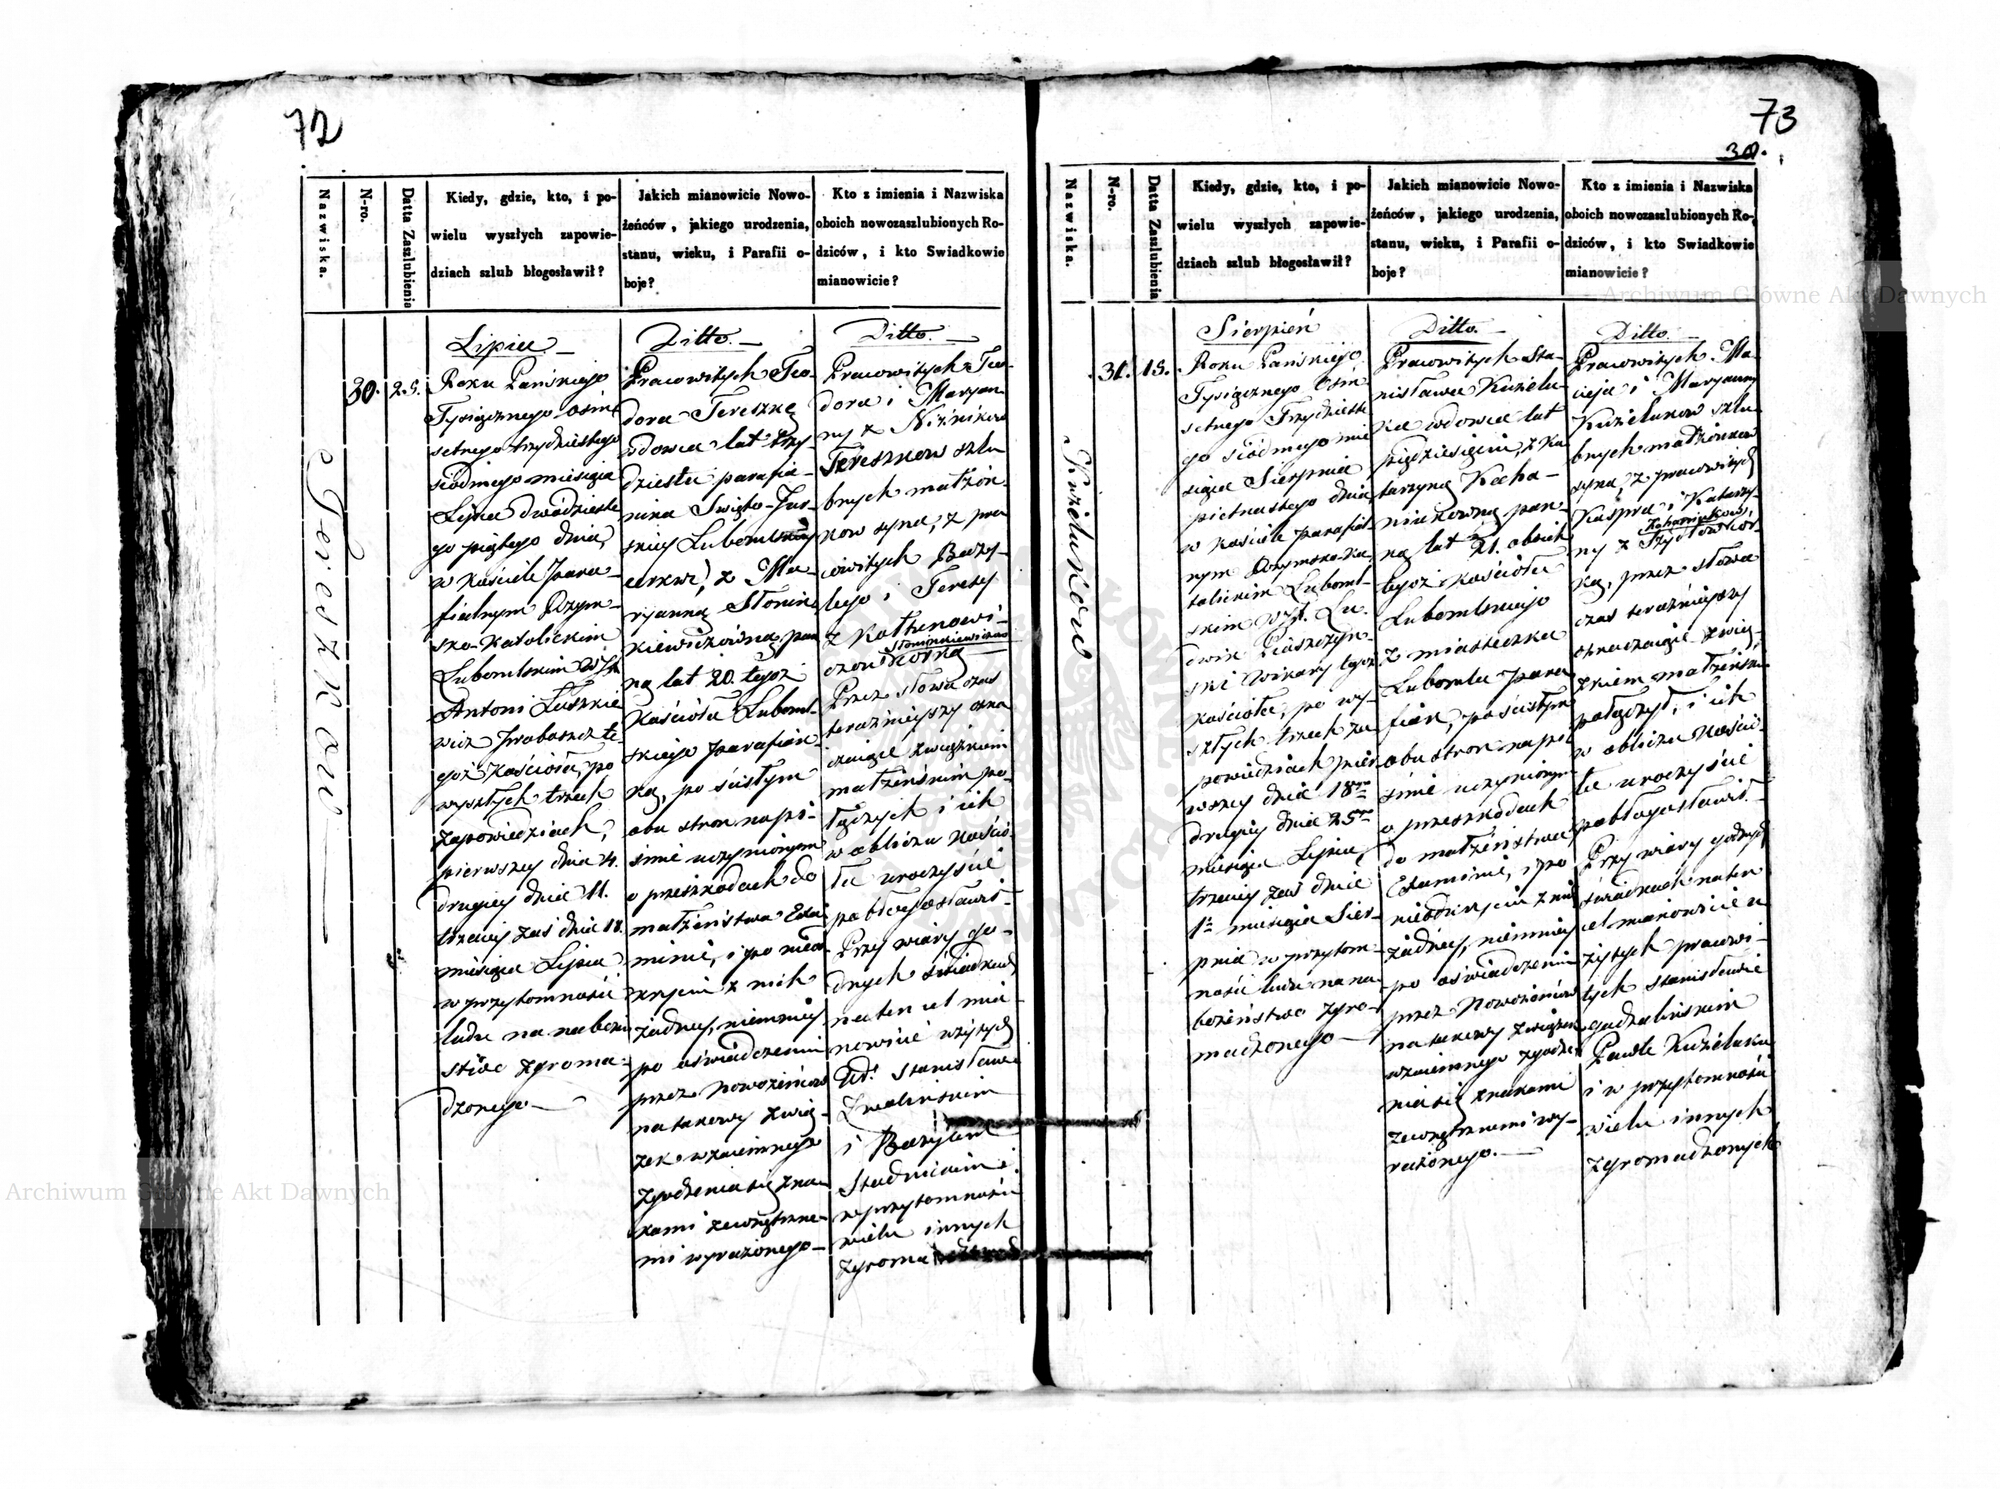 72
Nazwiska.
N-ro.
Datta Zaszlubienia
Kiedy, gdzie, kto, i po-
wielu wyszłych zapowie-
dziach szlub błogosławił?
Jakich mianowicie Nowo-
żeńców, jakiego urodzenia,
stanu, wieku, i Parafii o-
boje?
Kto z imienia i Nazwiska
oboich nowozaszlubionych Ro-
dziców, i kto Swiadkowie
mianowicie?
Tereszkow
30.
25.
Lipiec
Roku Pańskiego
Tysiącznego ośm
setnego trzydziestego
siódmego miesiąca
Lipca dwódzieste
go piątego dnia,
w Kościele Para-
fialnym Rzym-
sko-Katolickim
Lubomlskim
Antoni Łuszkie
wicz Proboszcz te-
goż Kościoła, po
wyszłych trzech
zapowiedziach,
pierwszey dnia 4.
drugiey dnia 11.
trzeciey zaś dnia 18.
miesiąca Lipca
w przytomności
ludu na nabożeń
stwo zgroma-
dzonego.
Ditto.
Pracowitych Teo-
dora Tereszkę
wdowca lat trzy
dziestu parafia-
nina Święto-Jur-
skiey Lubomlskiey
cerkwi, z Ma-
ryanną Słonin
kiewiczówną, pan
ną lat 20. tegoż
Kościoła Luboml-
skiego parafian-
ką, po ścisłym
obu stron na pi-
śmie uczynionym
o przeszkodach do
małżeństwa Exa-
minie, i po nied-
kryciu z nich
żadney, niemniey
po oświadczeniu
przez Nowożeńców
na takowy zwią-
zek wzaiemnego
zgodzenia się zna-
kami zewnętrzne-
mi wyrażonego
Ditto.
Pracowitych Teo-
dora i Maryan-
ny z Niżników
Tereszkow szlu-
bnych małżon-
kow syna, z pra
cowitych Bazy-
lego i Teresy
z Kothenowi-
Słoninkiewiczow
czow córką
Przez słowa czas
teraźnieyszy ozna
czaiące związkiem
małżeńskim po-
łączył i ich
w obliczu Kościo-
ła uroczyście
pobłogosławił
Przy wiary go-
dnych świadkach
na ten cel mia-
nowicie użytych
Ur: Stanisławie
Zwolińskim
i Bazylim
Stadnickim i
w przytomności
wielu innych
zgroma
73
30.
Nazwiska.
N-ro.
Datta Zaszlubienia
Kiedy, gdzie, kto, i po-
wielu wyszłych zapowie-
dziach szlub błogosławił?
Jakich mianowicie Nowo-
żeńców, jakiego urodzenia,
stanu, wieku, i Parafii o-
boje?
Kto z imienia i Nazwiska
oboich nowozaszlubionych Ro-
dziców, i kto Swiadkowie
mianowicie?
Kuzelukow
31.
15.
Sierpień
Roku Pańskiego
Tysiącznego Ośm
setnego Trzydzieste
go siódmego mie
siąca Sierpnia
pietnastego dnia
w Kościele parafial-
nym Rzymsko-Ka-
tolickim Luboml-
skim Lu-
dwik Piaszczyń-
ski Wikary tegoż
Kościoła, po wy-
szłych trzech za
powiedziach pier
wszey dnia 18
drugiey dnia 25
miesiąca Lipca
trzeciey zaś dnia
1 miesiąca Sier-
pnia w przytom-
ności ludu na na-
bożeństwo zgro-
madzonego
Ditto.
Pracowitych Sta-
nisława Kuzelu
ka wdowca lat
pięćdziesięciu, z Ka
tarzyną Kocha-
niukowną pan-
ną lat 21. oboich
tegoż Kościoła
Lubomlskiego
z miasteczka
Lubomla para
fian, po ścisłym
obu stron na pi-
śmie uczynionym
o przeszkodach
do małżeństwa
Examinie, i po
nieodkryciu z nich
żadney, niemniey
po oświadczeniu
przez Nowożeńców
na takowy związek
wzaiemnego zgodze
nia się znakami
zewnętrznemi wy-
rażonego.
Ditto.
Pracowitych Ma-
cieja i Maryanny
Kuzelukow szlu-
bnych małżonkow
syna, z pracowitych
Kaspra i Katarzy-
Kochaniukow
ny z Szydłow
ką, przez słowa
czas teraźnieyszy
oznaczaiące zwią-
zkiem małżeńskim
połączył, i ich
w obliczu Kościo-
ła uroczyście
pobłogosławił
Przy wiary godnych
świadkach na ten
cel mianowicie u
żytych pracowi-
tych Stanisławie
Gadzalińskim
Pawle Kuzeluku
i w przytomności
wielu innych
zgromadzonych
Archiwum Główne Akt Dawnych
Archiwum Główne Akt Dawnych